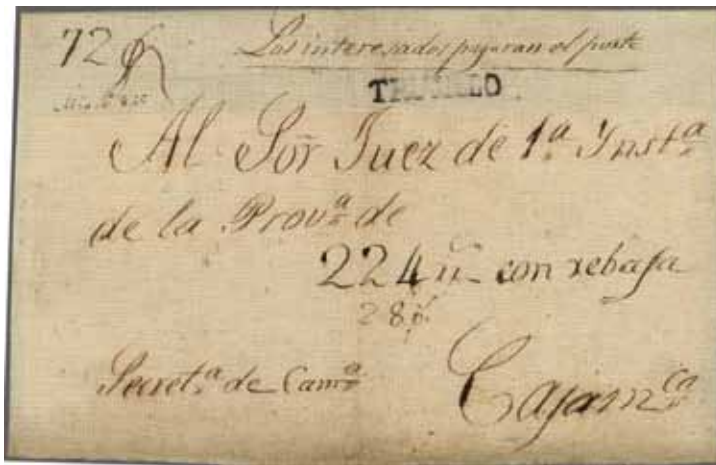 72
Los interesados pagaran el porte
TRUJILLO
Al Sor̃ Juez de 1ª Instª
de la Provª de
224 con rebaja
28
Secretª de Camª
Cajamca